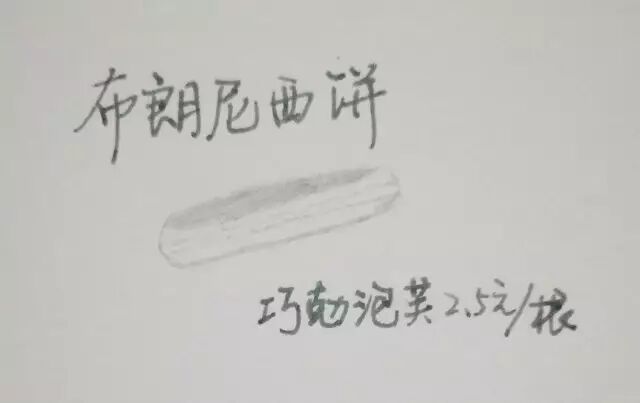 布朗尼西饼
巧勀泡芙2.5元/根